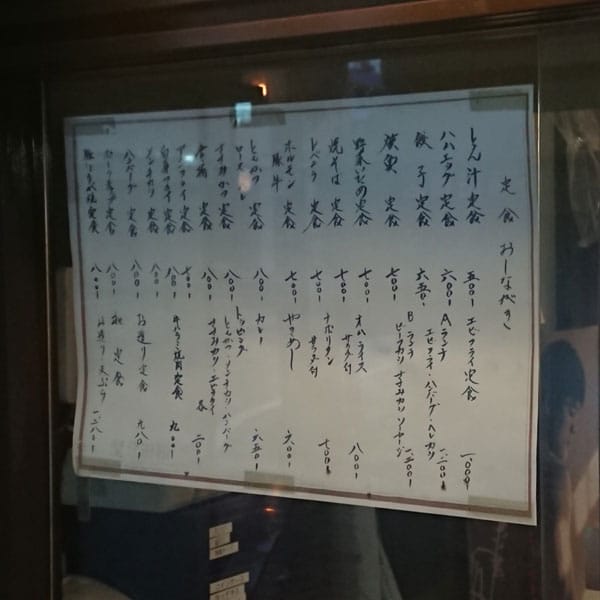 定食 おしながき
とん汁定食 五〇〇
ハムエッグ定食 六〇〇
餃子定食 六五〇
焼魚 定食 七〇〇
野菜いため定食 七〇〇
焼そば 定食 七〇〇
レバニラ 定食 七〇〇
ホルモン 定食 七〇〇
豚牛
とんかつ 定食 八〇〇
ロース
ささみかつ 定食 八〇〇
定食 八〇〇
アジフライ 定食 八〇〇
白身フライ 定食 八〇〇
メンチカツ 定食 八〇〇
ハンバーグ 定食 八〇〇
定食 八〇〇
豚しょうが焼定食 八〇〇
エビフライ定食 一、〇〇〇
Aランチ
エビフライ・ハンバーグ・ヘレカツ 一、二〇〇
Bランチ
ビーフカツ ささみカツ ソーセージ 一、二〇〇
オムライス
サラダ付 八〇〇
ナポリタン
サラダ付 七〇〇
やきめし 六〇〇
カレー 六五〇
トッピング
とんかつ・メンチカツ・ハンバーグ
ささみカツ・エビフライ 各 二〇〇
牛ハラミ焼肉定食 九〇〇
お造り定食 九八〇
定食
お造り・天ぷら 一、二八〇